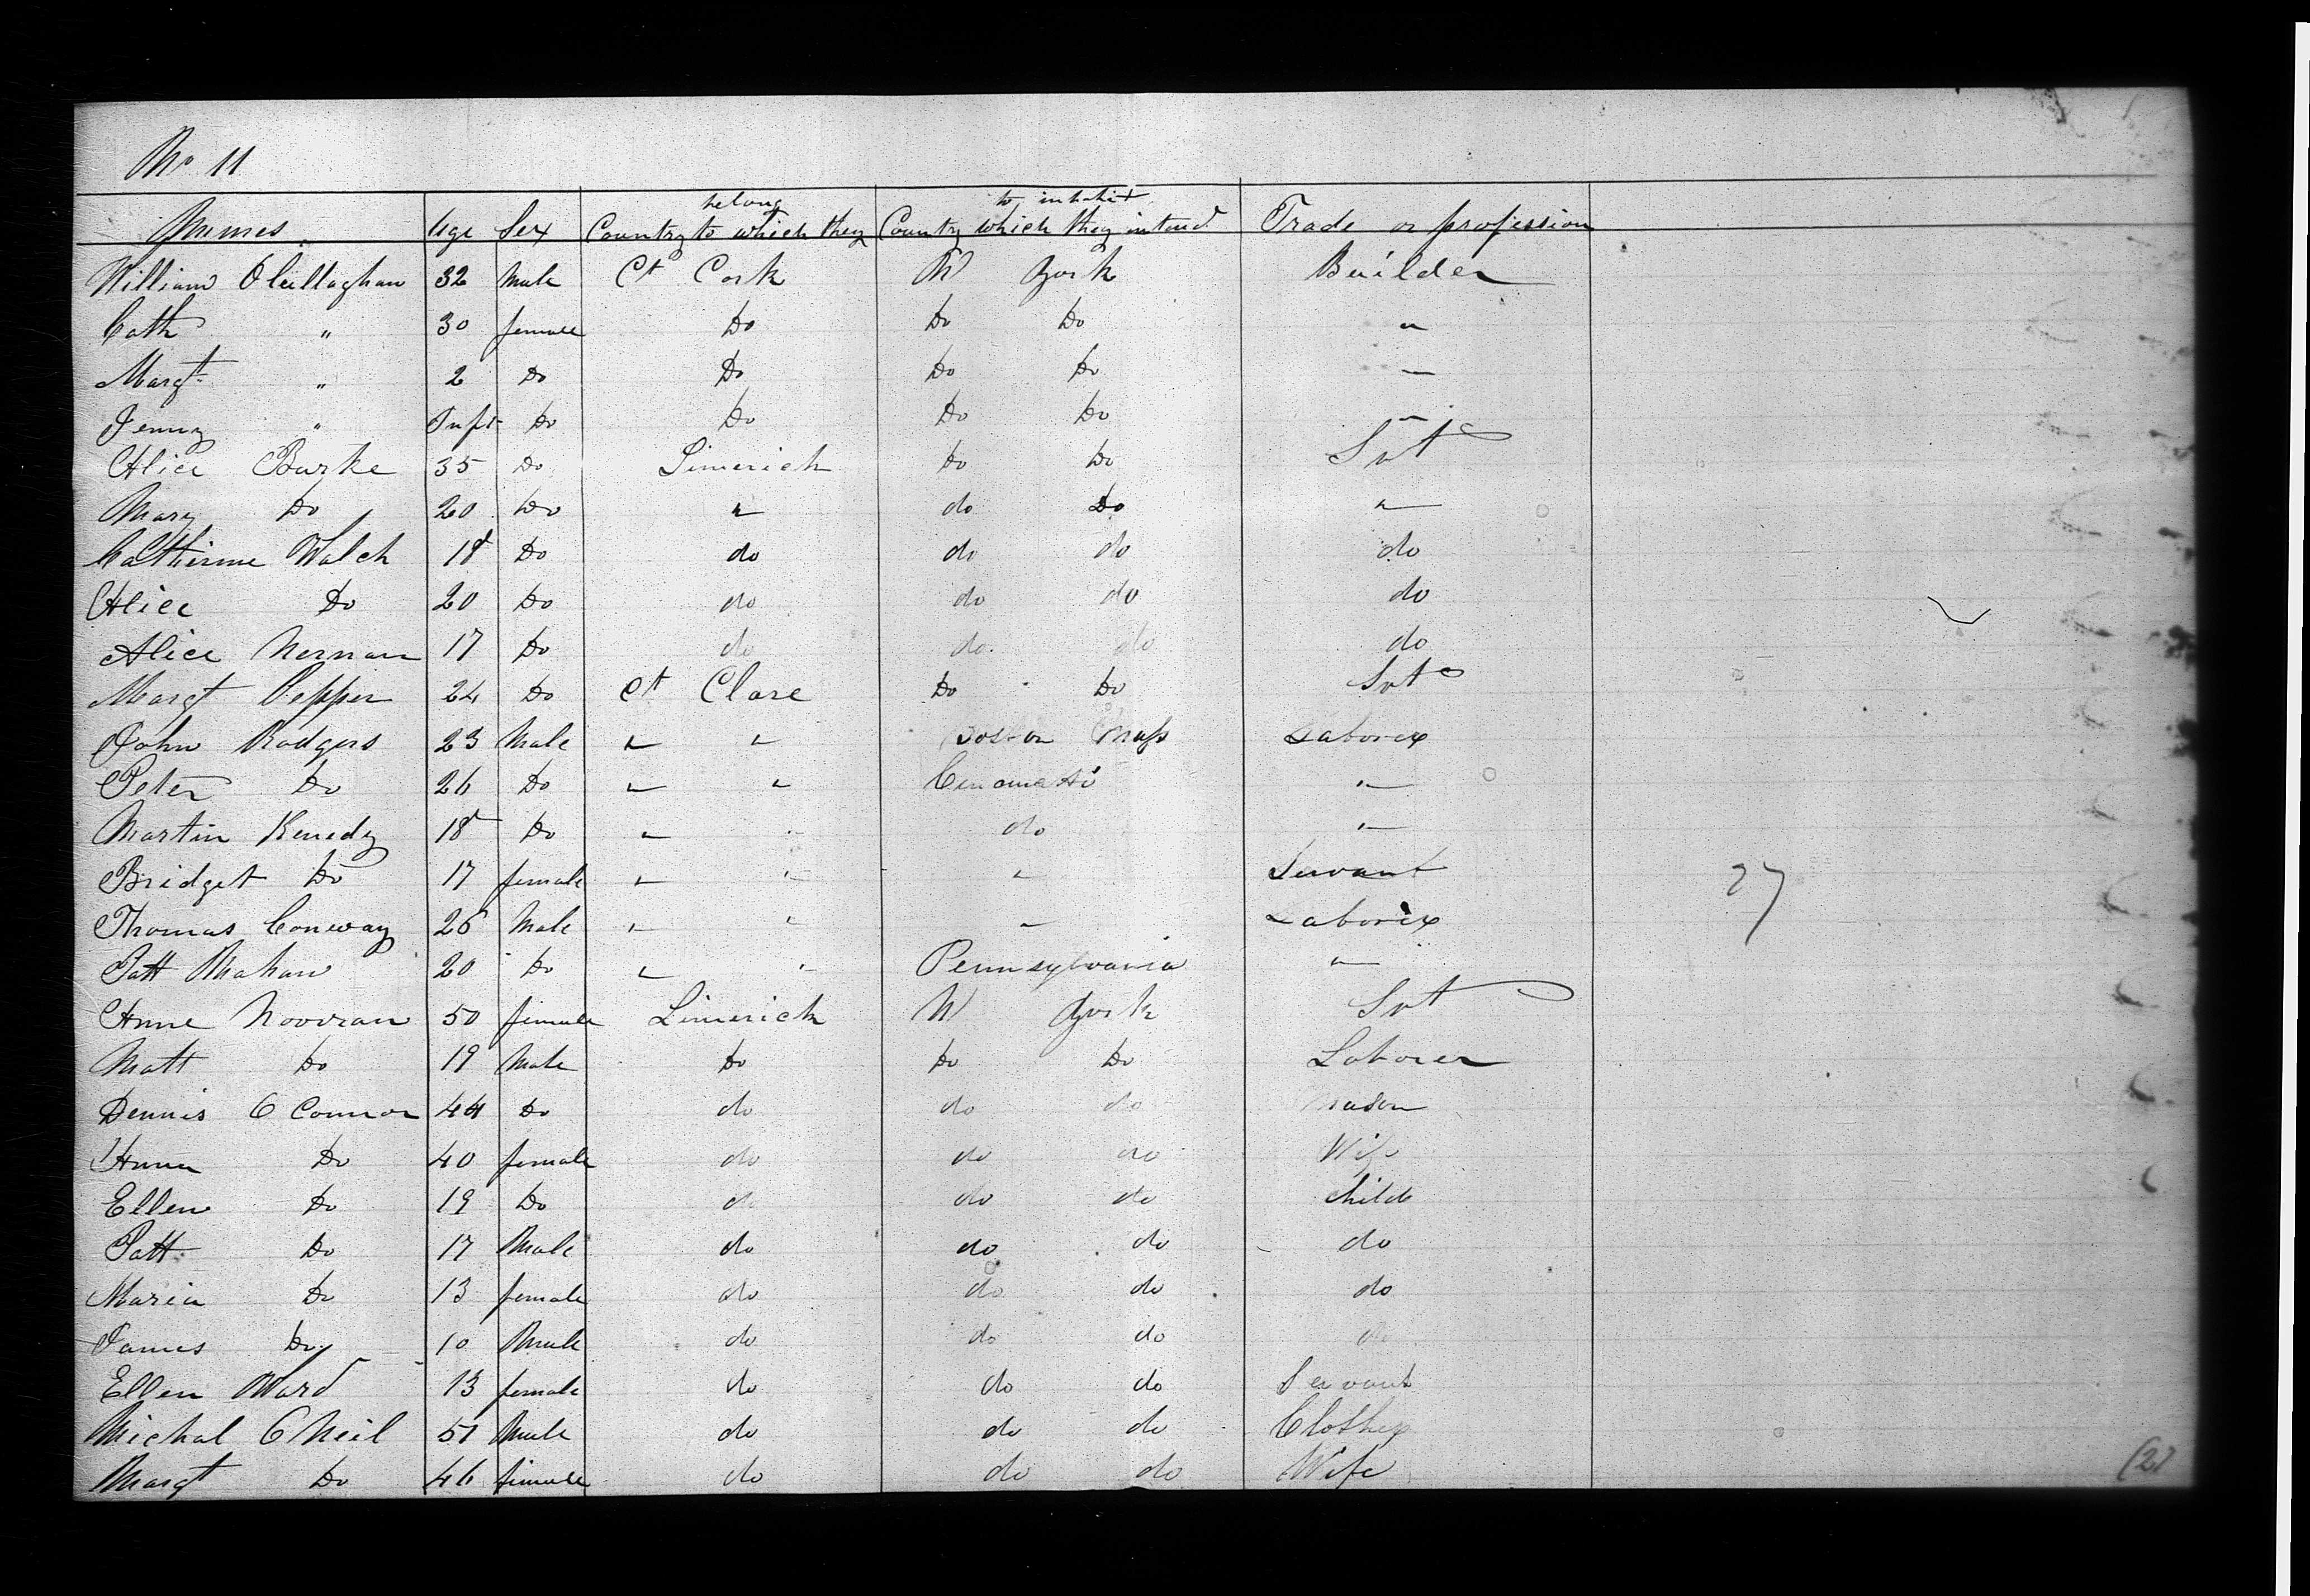 No 11
Names Age Sex Country to which they belong Country which they intend to inhabit Trade or profession
William O Callaghan 32 Male Ct Cork N York Builder
Cath " 30 female Do Do Do "
Margt " 2 Do Do Do Do "
Jenny " Inft Do Do Do Do "
Alice Burke 35 Do Limerick Do Do Svt
Mary Do 20 Do " do Do "
Catherine Walch 18 Do do do do do
Alice Do 20 Do do do do do
Alice 17 Do do do do do
Margt Pepper 24 Do Ct Clare Do Do Svt
John Rodgers 23 Male " " Boston Mass Laborer
Peter Do 26 Do " " Cincinati "
Martin Kenedy 18 Do " " do "
Bridget Do 17 female " " " Servant
Thomas Conway 26 Male " " " Laborer
27
Patt Mahan 20 Do " " Pennsylvania "
Anne Noovran 50 female Limerick N York Svt
Matt Do 19 Male Do Do Do Laborer
Dennis O Connor 44 Do do do do Mason
Anna Do 40 female do do do Wife
Ellen Do 19 Do do do do child
Patt Do 17 Male do do do do
Maria Do 13 female do do do do
James Do 10 Male do do do do
Ellen Ward 13 female do do do Servant
Michal O Neil 51 Male do do do Clother
Margt Do 46 female do do do Wife